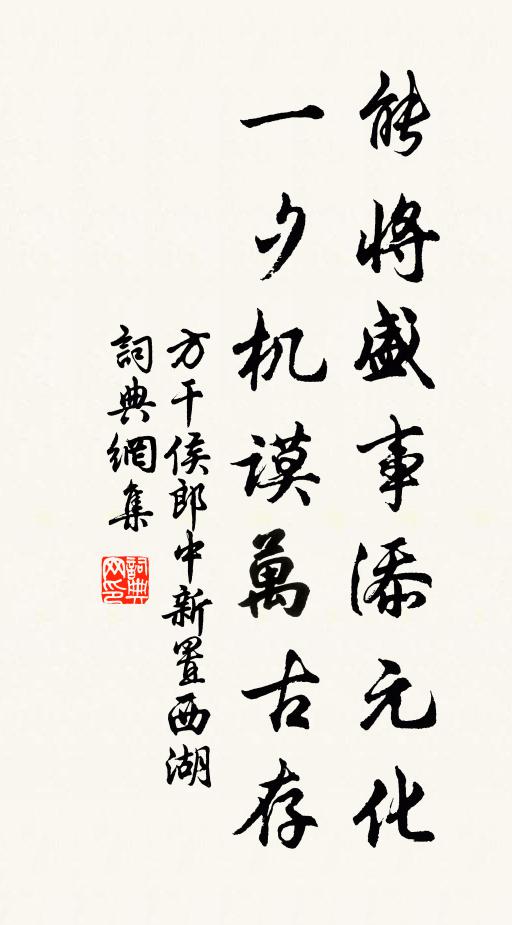 能將盛事添元化
一夕机謨萬古存
方干侯郎中新置西湖
詞典網集
詞典网印